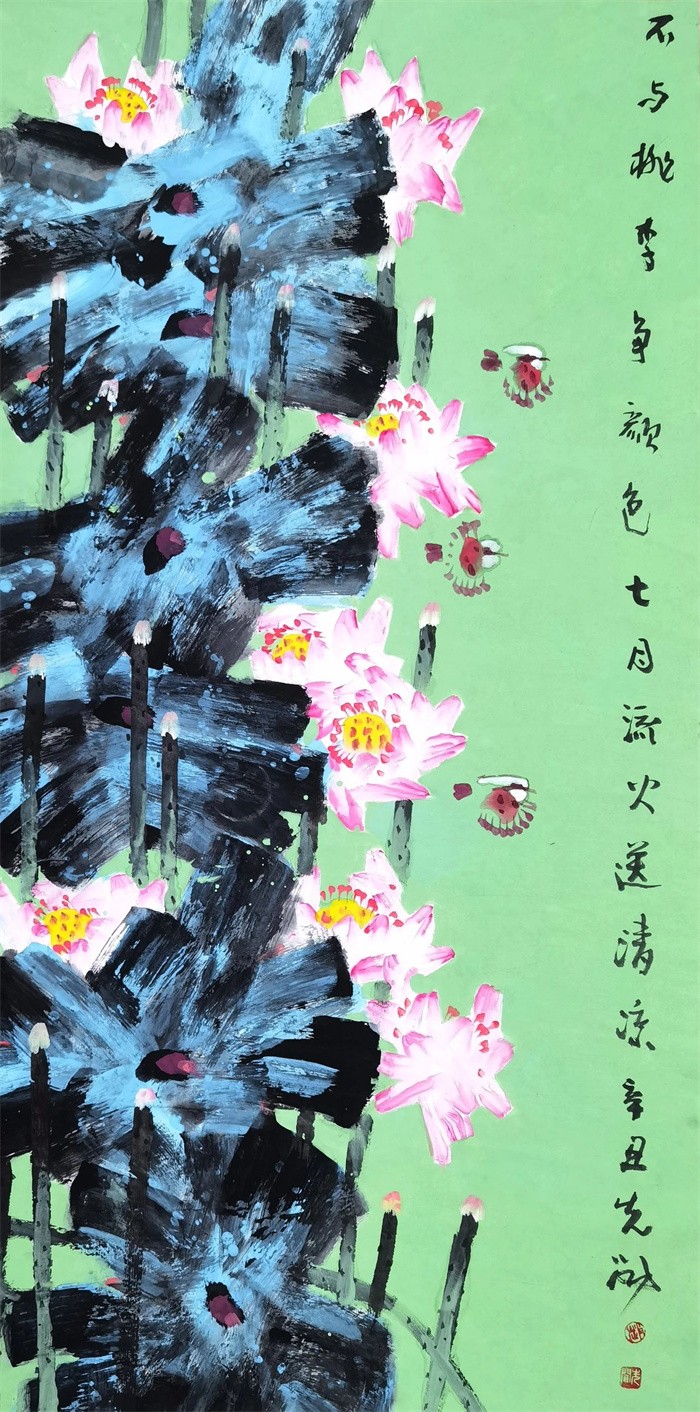 不与桃李争颜色七月流火送清凉辛丑先